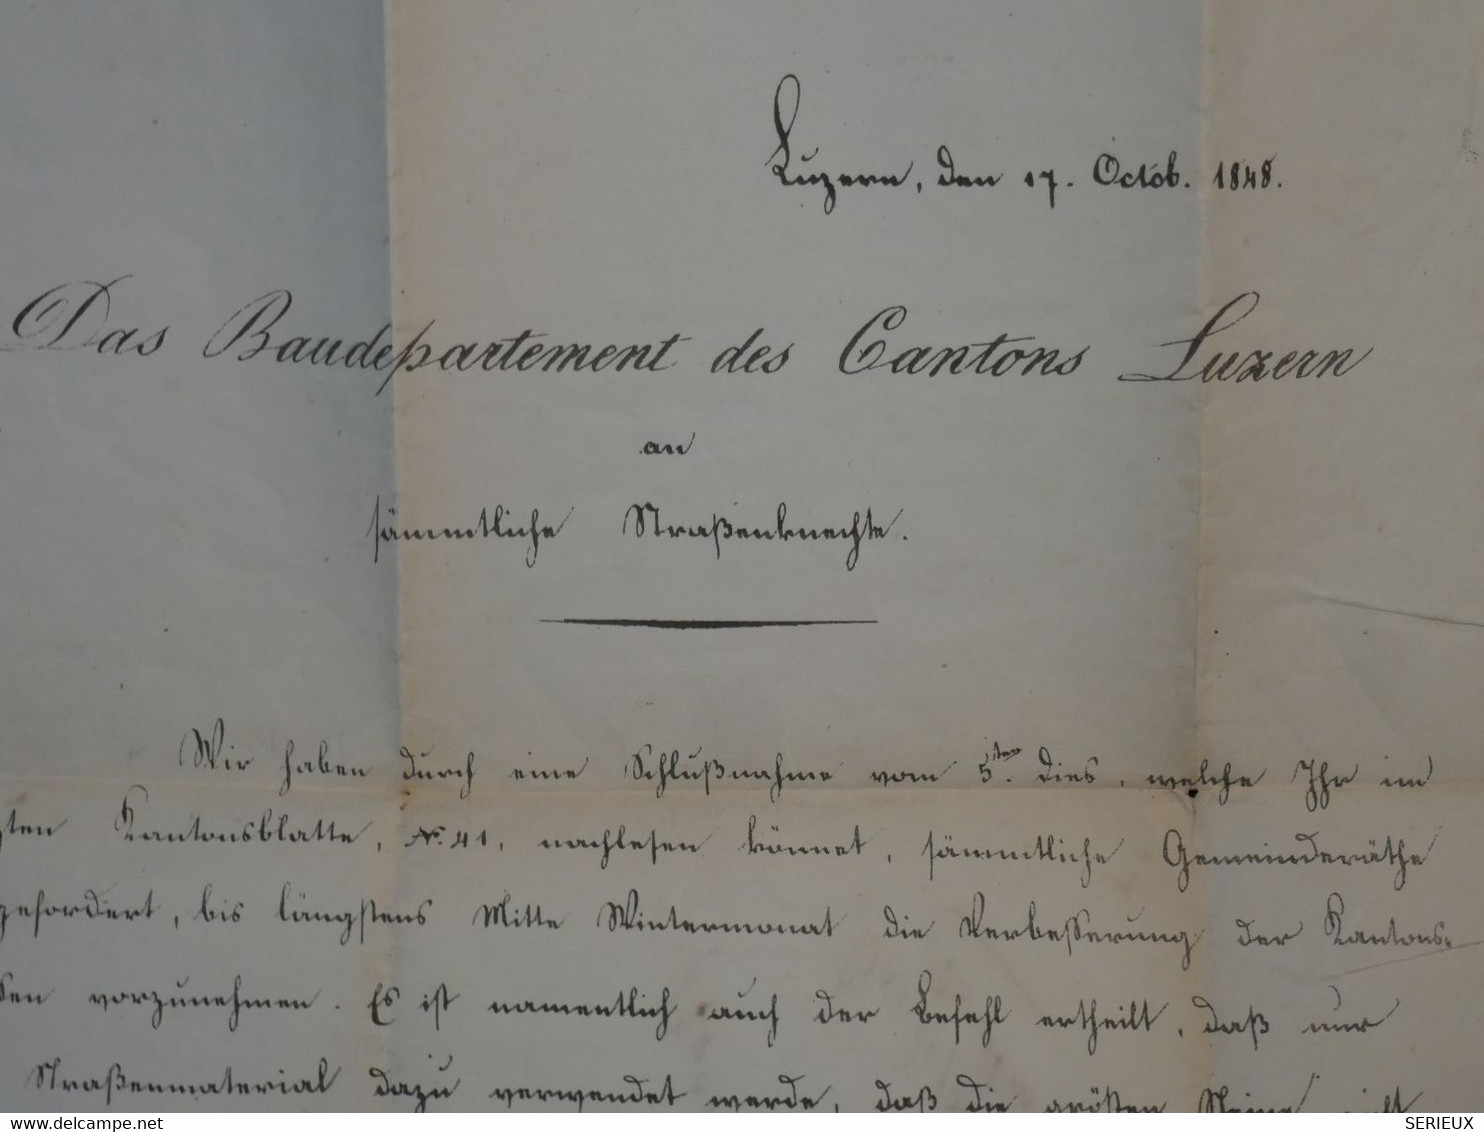 Luzern, den 17. Octob. 1848.
Das Baudepartement des Cantons Luzern
an
sämmtliche Straßenknechte.
Wir haben durch eine Schlußnahme vom 5ten dies, welche Ihr im
Kantonsblatte, No. 41, nachlesen könnet, sämmtliche Gemeinderäthe
gefordert, bis längstens Mitte Wintermonat die Verbesserung der Kantons-
vorzunehmen. Es ist namentlich auch der Befehl ertheilt, daß nur
Straßenmaterial dazu verwendet werde, daß die größten Steine nicht
www.delcampe.net
SERIEUX